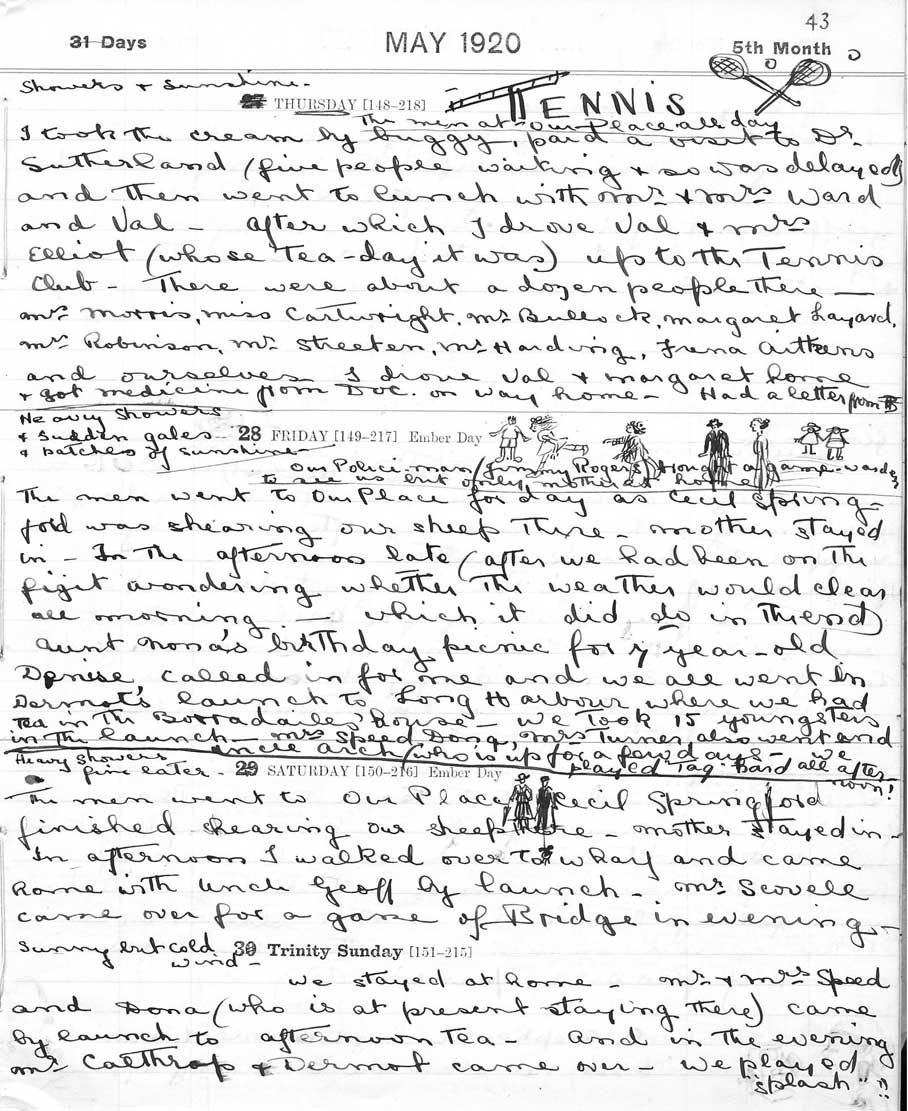 43
31 Days MAY 1920 5th Month
Showers & Sunshine.
THURSDAY [148-218] TENNIS
The men at Our Place all day
I took the cream by buggy, paid a visit to Dr.
Sutherland (five people waiting & so was delayed)
and then went to lunch with Mr. & Mrs Ward
and Val - After which I drove Val & Mrs
Elliot (whose tea-day it was) up to the Tennis
Club - There were about a dozen people there —
Mrs Morris, Miss Cartwright, Mr Bullock, Margaret Layard,
Mrs Robinson, Mr. Streeten, Mr Harding, Frena Aitkens
and ourselves. I drove Val & Margaret home
& got medicine from Doc. on way home - Had a letter from
Heavy Showers
& sudden gales - 28 FRIDAY [149-217] Ember Day
& patches of sunshine -
Our Police-man (Jimmy Rogers) brought a game-warden
to see us but only mother at home
The men went to Our Place for day as Cecil Spring-
ford was shearing our sheep there - Mother stayed
in - In the afternoon late (after we had been on the
figit wondering whether the weather would clear
all morning — which it did do in the end)
Aunt Nona's birthday picnic for 7 year-old
Denise called in for me and we all went in
Dermot's launch to Long Harbour where we had
tea in the Borradailes' house - We took 15 youngsters
in the launch - Mrs Speed Dona, Mrs Turner also went and
Uncle Arch (who is up for a few days - We
played Tag Hard all after-
noon!
Heavy Showers
fine later - 29 SATURDAY [150-216] Ember Day
The men went to Our Place Cecil Springford
finished shearing our sheep there - Mother stayed in -
In afternoon I walked over to wharf and came
home with Uncle Geoff by launch - Mr Scovell
came over for a game of Bridge in evening -
Sunny but cold 30 Trinity Sunday [151-215]
wind -
We stayed at home - Mr. & Mrs Speed
and Dona (who is at present staying there) came
by launch to afternoon tea - And in the evening
Mr. Calthrop & Dermot came over - We played
"splash"!!